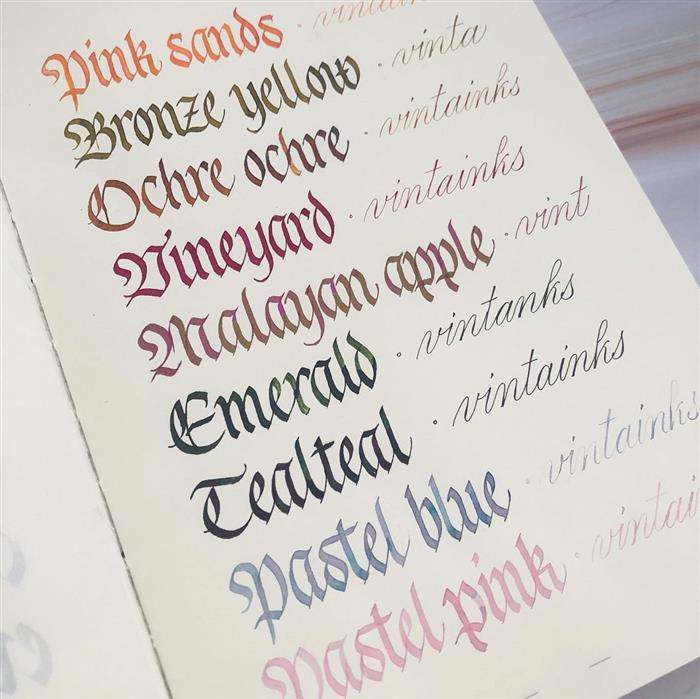 Pink sands · vintain
Bronze yellow · vinta
Ochre ochre · vintainks
Vineyard · vintainks
Malayan apple · vint
Emerald · vintanks
Tealteal · vintainks
Pastel blue · vintainks
Pastel pink · vintai